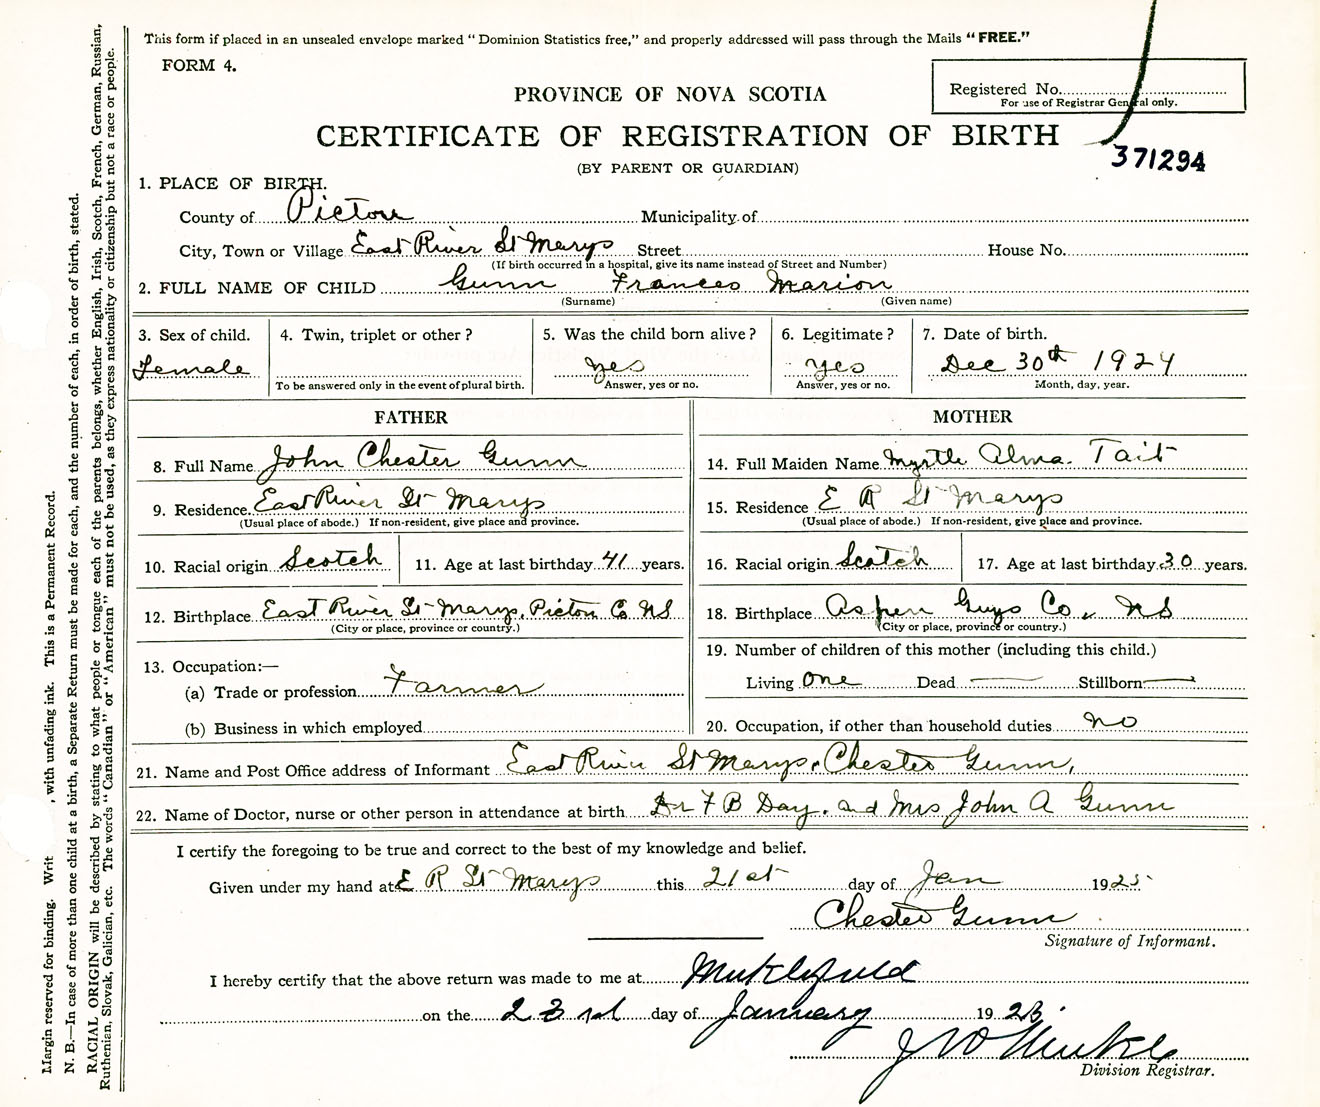 This form if placed in an unsealed envelope marked “Dominion Statistics free,” and properly addressed will pass through the Mails “FREE.”
FORM 4.
Registered No.
For use of Registrar General only.
PROVINCE OF NOVA SCOTIA
CERTIFICATE OF REGISTRATION OF BIRTH
371294
(BY PARENT OR GUARDIAN)
1. PLACE OF BIRTH.
County of Pictou Municipality of
City, Town or Village East River St Marys Street House No.
(If birth occurred in a hospital, give its name instead of Street and Number)
2. FULL NAME OF CHILD Gunn Frances Marion
(Surname) (Given name)
3. Sex of child. 4. Twin, triplet or other? 5. Was the child born alive? 6. Legitimate? 7. Date of birth.
Female yes yes Dec 30th 1924
To be answered only in the event of plural birth. Answer, yes or no. Answer, yes or no. Month, day, year.
FATHER
8. Full Name John Chester Gunn
9. Residence. East River St Marys
(Usual place of abode.) If non-resident, give place and province.
10. Racial origin Scotch 11. Age at last birthday 41 years.
12. Birthplace East River St Marys, Picton Co NS
(City or place, province or country.)
13. Occupation:—
(a) Trade or profession Farmer
(b) Business in which employed
MOTHER
14. Full Maiden Name Myrtle Alma. Tait
15. Residence E R St Marys
(Usual place of abode.) If non-resident, give place and province.
16. Racial origin Scotch 17. Age at last birthday 30 years.
18. Birthplace Aspen Guys Co, NS
(City or place, province or country.)
19. Number of children of this mother (including this child.)
Living one Dead — Stillborn —
20. Occupation, if other than household duties no
21. Name and Post Office address of Informant East River St Marys, Chester Gunn,
22. Name of Doctor, nurse or other person in attendance at birth Dr F B Day. and Mrs John A Gunn
I certify the foregoing to be true and correct to the best of my knowledge and belief.
Given under my hand at E R St Marys this 21st day of Jan 1925
Chester Gunn
Signature of Informant.
I hereby certify that the above return was made to me at
on the 23rd day of January 19
Division Registrar.
Margin reserved for binding. Writ , with unfading ink. This is a Permanent Record.
N. B.—In case of more than one child at a birth, a Separate Return must be made for each, and the number of each, in order of birth, stated.
RACIAL ORIGIN will be described by stating to what people or tongue each of the parents belongs, whether English, Irish, Scotch, French, German, Russian,
Ruthenian, Slovak, Galician, etc. The words “Canadian” or “American” must not be used, as they express nationality or citizenship but not a race or people.